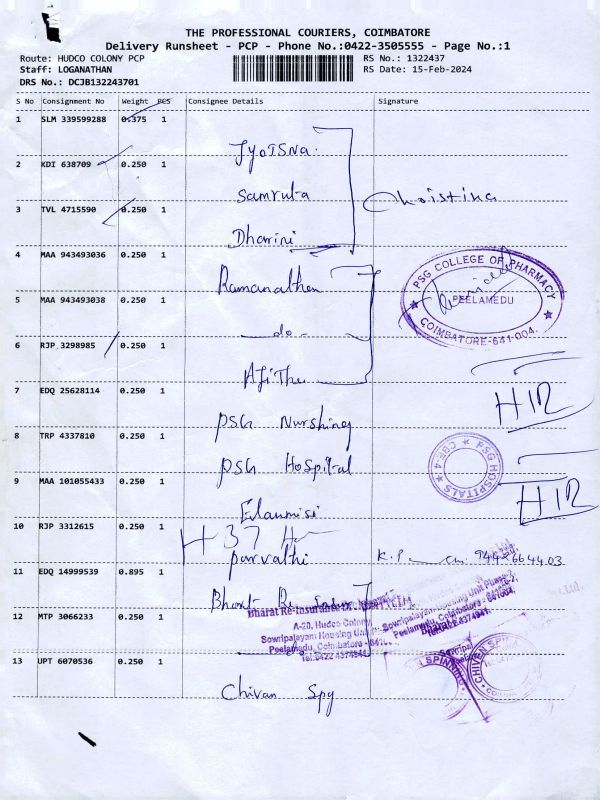 THE PROFESSIONAL COURIERS, COIMBATORE
Delivery Runsheet - PCP - Phone No.:0422-3505555 - Page No.:1
Route: HUDCO COLONY PCP
Staff: LOGANATHAN
DRS No.: DCJB132243701
RS No.: 1322437
RS Date: 15-Feb-2024
S No Consignment No Weight PCS Consignee Details Signature
1 SLM 339599288 0.375 1
Jyotsna
2 KDI 638709 0.250 1
Samruta
Christina
3 TVL 4715590 0.250 1
Dharini
4 MAA 943493036 0.250 1
Ramanathan
PSG COLLEGE OF PHARMACY
PEELAMEDU
COIMBATORE-641 004.
5 MAA 943493038 0.250 1
do
6 RJP 3298985 0.250 1
Ajithu
7 EDQ 25628114 0.250 1
PSG Nurshing
8 TRP 4337810 0.250 1
PSG Hospital
PSG HOSPITALS
CBE-4
9 MAA 101055433 0.250 1
10 RJP 3312615 0.250 1
H 37
parvathi
11 EDQ 14999539 0.895 1
Bharat Re
Bharat Re-Insurance
A-20, Hudco Colony
Sowripalayam Housing Unit
Peelamedu, Coimbatore
Tel:0422 4374941
Sowripalayam Housing Unit Phase-2,
Peelamedu, Coimbatore - 641004,
12 MTP 3066233 0.250 1
13 UPT 6070536 0.250 1
Chivan Spg
CHIVEN SPIN